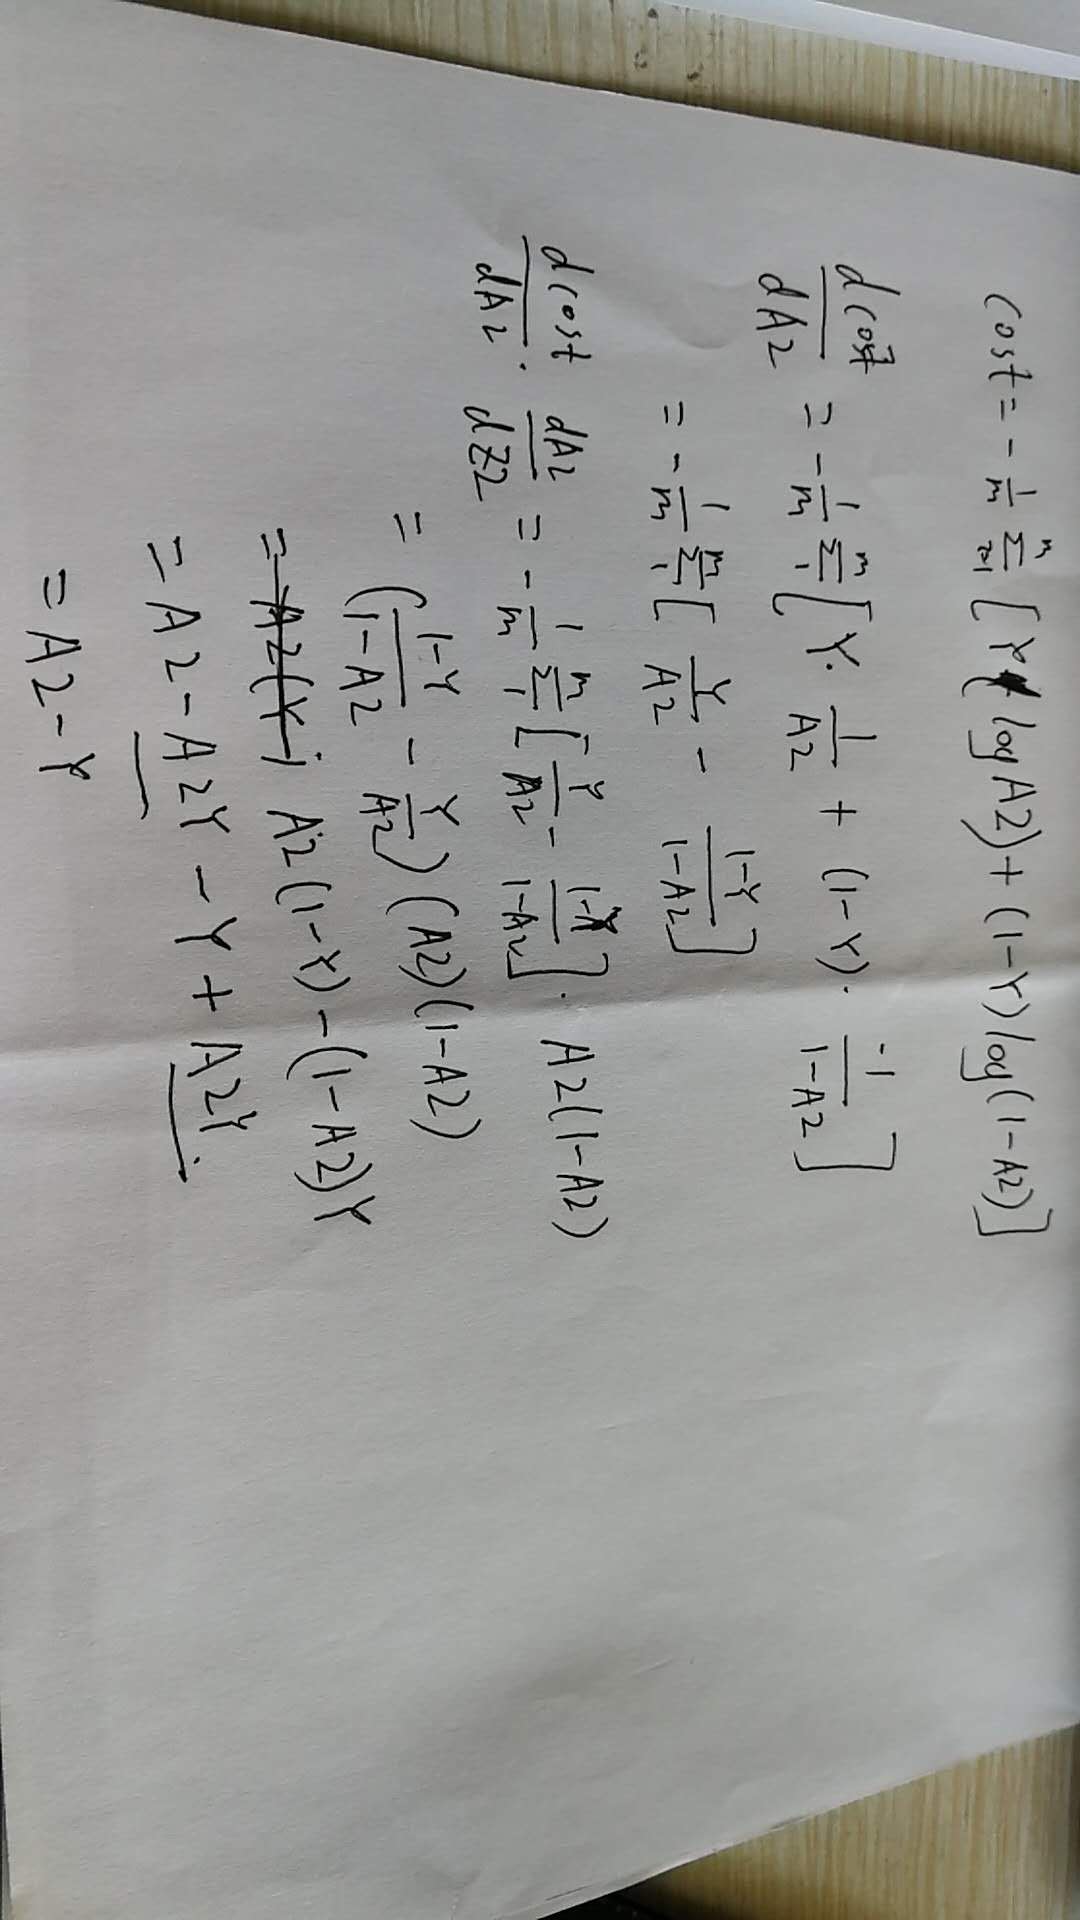 cost = - 1/m Σ_{i=1}^{m} [ Y (log A2) + (1-Y) log (1-A2) ]
dcost/dA2 = - 1/m Σ_{1}^{m} [ Y · 1/A2 + (1-Y) · -1/(1-A2) ]
= - 1/m Σ_{1}^{m} [ Y/A2 - (1-Y)/(1-A2) ]
dcost/dA2 · dA2/dZ2 = - 1/m Σ_{1}^{m} [ Y/A2 - (1-Y)/(1-A2) ] · A2(1-A2)
= ( (1-Y)/(1-A2) - Y/A2 ) (A2)(1-A2)
= A2(1-Y) - (1-A2)Y
= A2 - A2Y - Y + A2Y
= A2 - Y